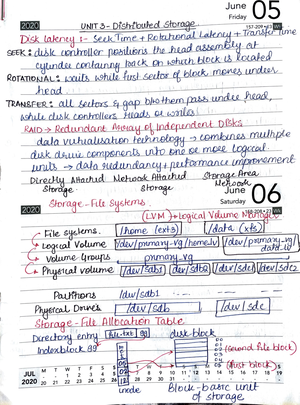 June 05
2020
Friday
UNIT 3 - Distributed Storage
157-209 • 23
Disk latency :- Seek Time + Rotational Latency + Transfer time
SEEK: disk controller positions the head assembly at
cylinder containing track on which block is located
ROTATIONAL: waits while first sector of block moves under
head
TRANSFER: all sectors & gap b/w them pass under head,
while disk controller reads or writes
RAID → Redundant Array of Independent Disks
data virtualisation technology → combines multiple
disk drive components into one or more logical
units → data redundancy & performance improvement
Directly Attached Network Attached Storage Area
Storage Storage Network
June 06
2020
Saturday
Storage - File Systems
(LVM) → Logical Volume Manager
File systems /home (ext3) /data (xfs)
Logical Volume /dev/primary-vg/home-lv /dev/primary_vg/
Volume Groups primary_vg
Physical volume /dev/sdb1 /dev/sdb2 /dev/sdc1 /dev/sdc2
Partitions /dev/sdb1
Physical Drives /dev/sdb /dev/sdc
Storage - File Allocation Table
Directory entry file.txt 99 disk-block
Indexblock 99
(second file block)
(first block)
JUL 2020
M T W T F S S
inode
Block - basic unit
of storage